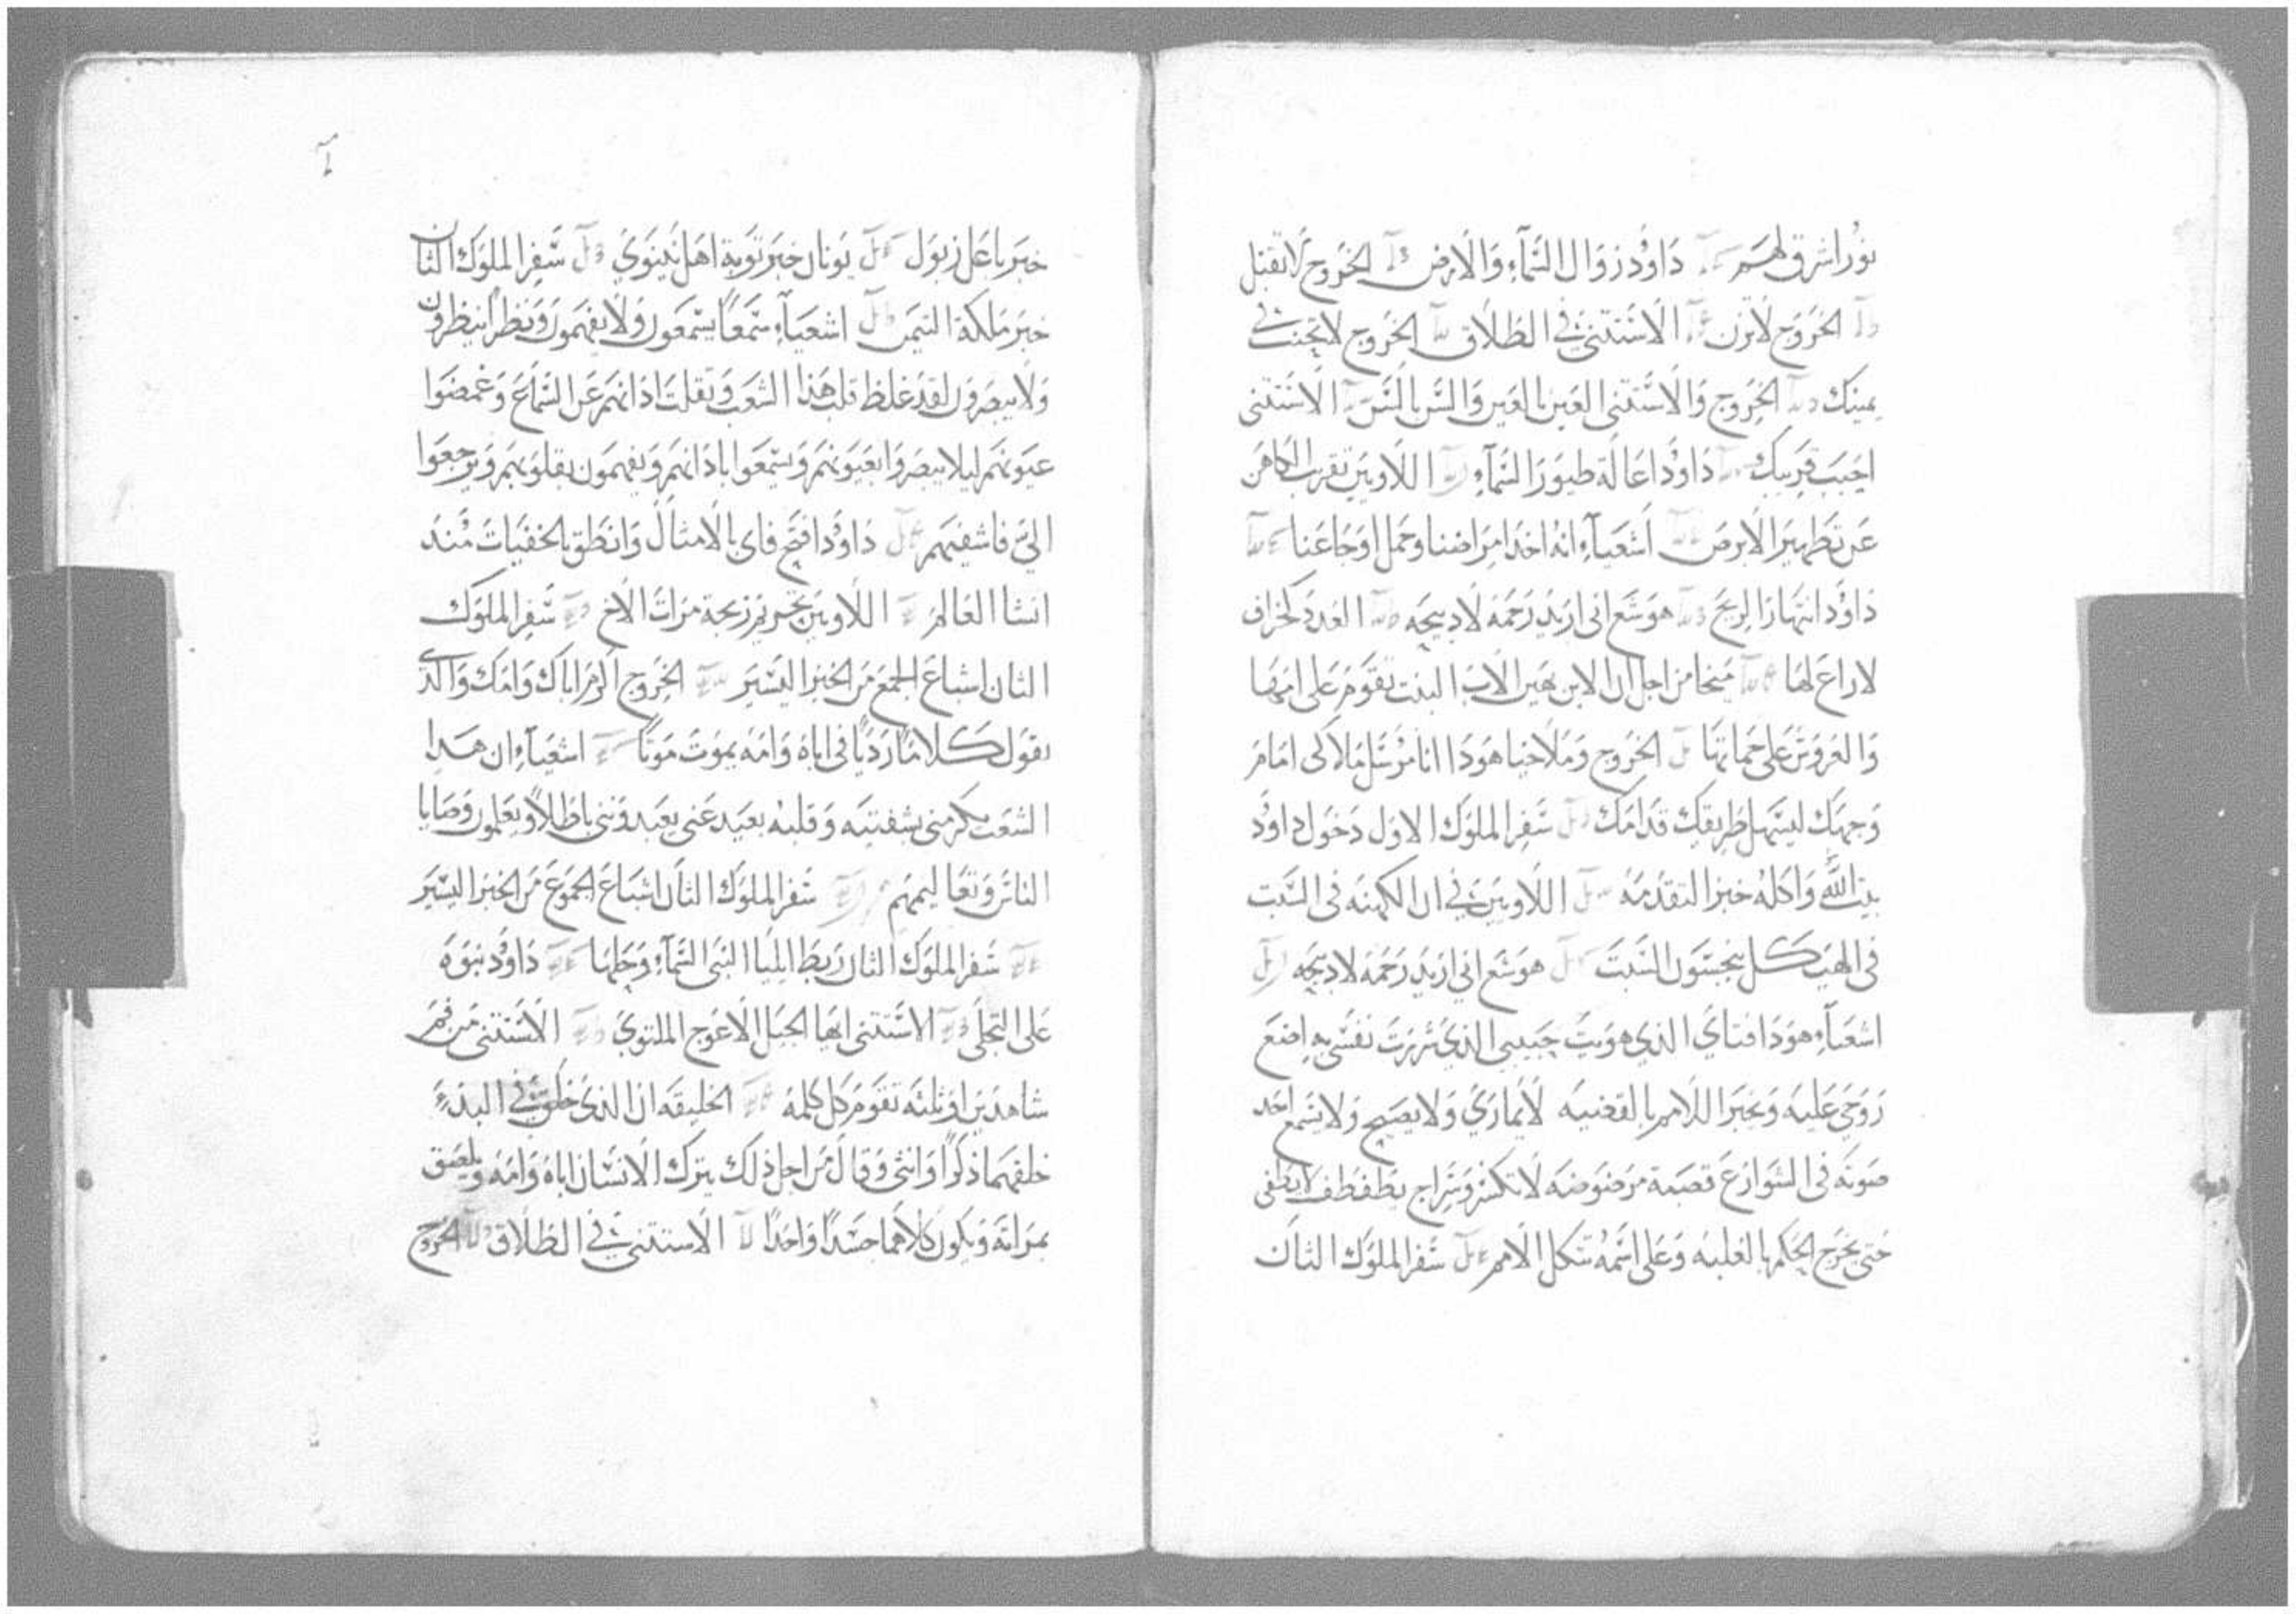 نور اشرق لهم داوود زوال السمآء والارض الخروج لا تقتل
الخروج لا تزن الاستتنى في الطلاق الخروج لا تحنث في
يمينك الخروج والاستتنى العين بالعين والسن بالسن الاستتنى
احبب قريبك داوود اعالة طيور السمآء اللاويين تقرب الكاهن
عن تطهير الابرص اشعيآء انه اخد امراضنا وحمل اوجاعنا
داوود انتهار الريح هوشع انى اريد رحمه لا دبيحه العدد كخراف
لا راع لها ميخا من اجل ان الابن يهين الاب البنت تقوم على امها
والعروس على حماتها الخروج وملاخيا هودا انا مرسل ملاكى امام
وجهك ليسهل طريقك قدامك سفر الملوك الاول دخول داوود
بيت الله واكله خبز التقدمه اللاويين في ان الكهنه فى السبت
فى الهيكل ينجسون السبت هوشع انى اريد رحمه لا دبيحه
اشعيآء هودا فتاي الذي هويت حبيبى الذي سررت نفسى به اضع
روحي عليه ويخبر الامم بالقضيه لا يماري ولا يصيح ولا يسمع احد
صوته فى الشوارع قصبة مرضوضه لا تكسر وسراج يطفطف لا يطفى
حتى يخرج الحكم بالغلبه وعلى اسمه تتكل الامم سفر الملوك الثان
خبر باعل زبول يونان خبر توبة اهل نينوي سفر الملوك الثان
خبر ملكة التيمن اشعيآء سمعا يسمعون ولا يفهمون ونظرا ينظرون
ولا يبصرون لقد غلظ قلب هذا الشعب وثقلت اذانهم عن السماع وغمضوا
عيونهم ليلا يبصروا بعيونهم ويسمعوا باذانهم ويفهمون بقلوبهم ويرجعوا
الي فاشفيهم داوود افتح فاى بالامثال وانطق بالخفيات مند
انشا العالم اللاويين تحريم زيجة مرات الاخ سفر الملوك
الثان اشباع الجمع من الخبز اليسير الخروج اكرم اباك وامك والذى
يقول كلاما رديا فى اباه وامه يموت موتا اشعيآء ان هدا
الشعب يكرمنى بشفتيه وقلبه بعيد عنى يعبدوننى باطلا ويعلمون وصايا
الناس وتعاليمهم سفر الملوك الثان اشباع الجموع من الخبز اليسير
سفر الملوك الثان ربط ايليا النبى السمآء وحلها داوود نبوة
على التجلى الاستتنى ايها الجيل الاعوج الملتوي الاستتنى من فم
شاهدين او ثلثه تقوم كل كلمه الخليقه ان الذى خلق في البدء
خلقهما ذكرا وانثى وقال من اجل ذلك يترك الانسان اباه وامه ويلصق
بمراته ويكون كلاهما جسدا واحدا الاستتنى في الطلاق الخروج